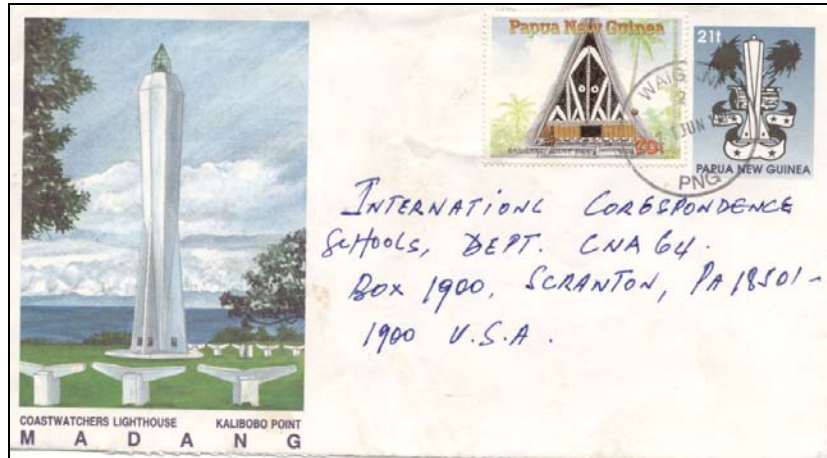 Papua New Guinea
70t
21t
PAPUA NEW GUINEA
JUN
PNG
INTERNATIONL CORESPONDENCE
SCHOOLS, DEPT. CNA 64.
BOX 1900, SCRANTON, PA 18501-
1900 U.S.A.
COASTWATCHERS LIGHTHOUSE KALIBOBO POINT
MADANG